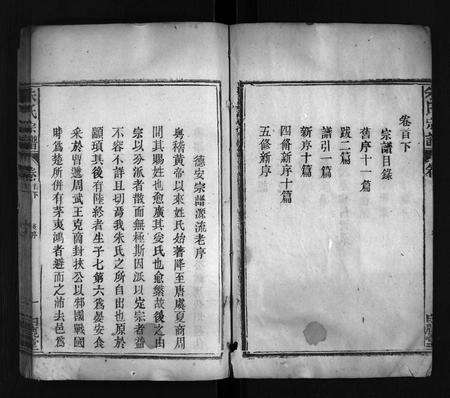 卷首下
宗譜目錄
舊序十一篇
跋二篇
譜引一篇
新序十篇
四脩新序十篇
五脩新序
德安宗譜源流老序
粵稽黃帝以來姓氏始著降至唐虞夏商周
間其賜姓也愈廣其受氏也愈繁故後之由
宗以分派者散而無極斯因派以定宗者益
不容不詳且切焉我朱氏之所自出也原於
顓頊其後有陸終者生子七第六為晏安食
采於曹逮周武王克商封挾公以邾國戰國
時為楚所併有茅夷鴻者避而之沛去邑為
朱氏宗譜
卷首下